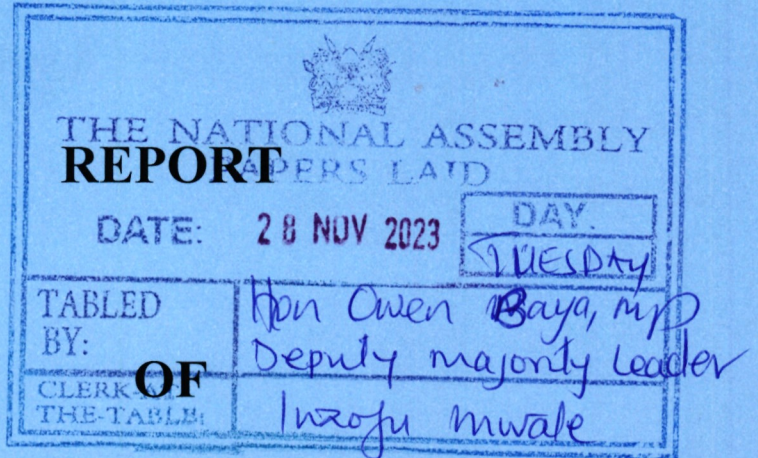 THE NATIONAL ASSEMBLY
REPORT
PAPERS LAID
DATE: 28 NOV 2023
DAY.
TUESDAY
TABLED BY:
Hon Owen Baya, MP
Deputy Majority Leader
OF
CLERK-AT
THE-TABLE:
Inzofu Mwale